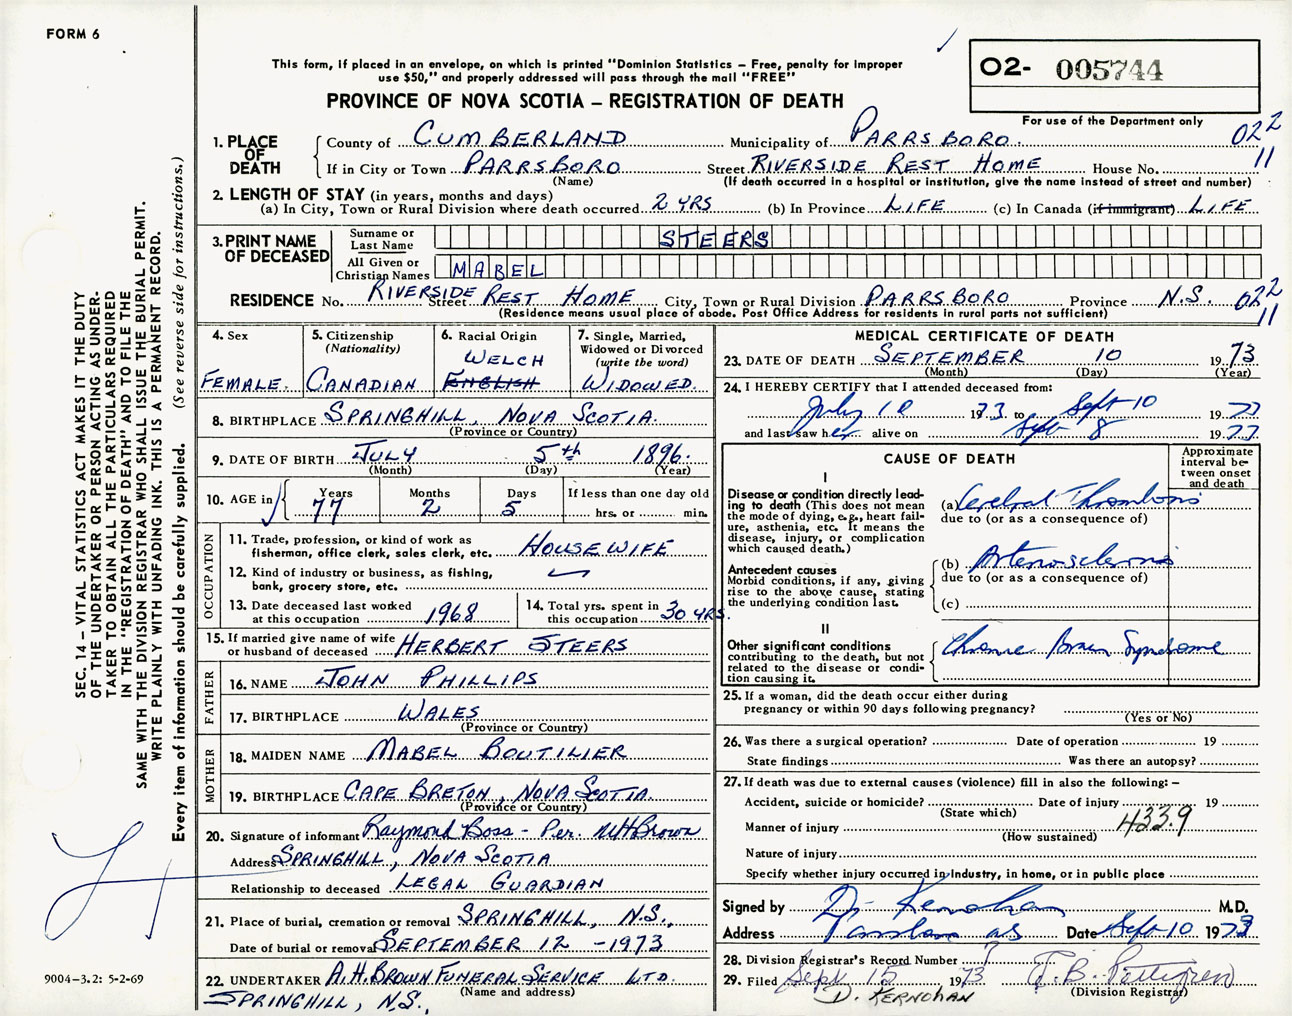 FORM 6
This form, if placed in an envelope, on which is printed "Dominion Statistics – Free, penalty for improper
use $50," and properly addressed will pass through the mail "FREE"
O2- 005744
For use of the Department only
PROVINCE OF NOVA SCOTIA – REGISTRATION OF DEATH
022
11
1. PLACE OF DEATH County of CUMBERLAND Municipality of PARRSBORO.
If in City or Town PARRSBORO Street RIVERSIDE REST HOME House No.
(Name) (If death occurred in a hospital or institution, give the name instead of street and number)
2. LENGTH OF STAY (in years, months and days)
(a) In City, Town or Rural Division where death occurred 2 YRS (b) In Province LIFE (c) In Canada (if immigrant) LIFE
3. PRINT NAME OF DECEASED
Surname or Last Name STEERS
All Given or Christian Names MABEL
RESIDENCE No. Street RIVERSIDE REST HOME City, Town or Rural Division PARRSBORO Province N.S. 022
11
(Residence means usual place of abode. Post Office Address for residents in rural parts not sufficient)
4. Sex FEMALE.
5. Citizenship (Nationality) CANADIAN
6. Racial Origin WELCH ENGLISH
7. Single, Married, Widowed or Divorced (write the word) WIDOWED.
8. BIRTHPLACE SPRINGHILL, NOVA SCOTIA.
(Province or Country)
9. DATE OF BIRTH JULY 5th 1896.
(Month) (Day) (Year)
10. AGE in Years 77 Months 2 Days 5 If less than one day old
hrs. or min.
OCCUPATION
11. Trade, profession, or kind of work as
fisherman, office clerk, sales clerk, etc. HOUSEWIFE
12. Kind of industry or business, as fishing,
bank, grocery store, etc.
13. Date deceased last worked
at this occupation 1968
14. Total yrs. spent in
this occupation 30 YRS.
15. If married give name of wife
or husband of deceased HERBERT STEERS
FATHER
16. NAME JOHN PHILLIPS
17. BIRTHPLACE WALES
(Province or Country)
MOTHER
18. MAIDEN NAME MABEL BOUTILIER
19. BIRTHPLACE CAPE BRETON, NOVA SCOTIA.
(Province or Country)
20. Signature of informant Raymond Boss - Per. MHBrown
Address SPRINGHILL, NOVA SCOTIA
Relationship to deceased LEGAL GUARDIAN
21. Place of burial, cremation or removal SPRINGHILL, N.S.,
Date of burial or removal SEPTEMBER 12 - 1973
22. UNDERTAKER A.H. BROWN FUNERAL SERVICE LTD.
(Name and address)
SPRINGHILL, N.S.,
MEDICAL CERTIFICATE OF DEATH
23. DATE OF DEATH SEPTEMBER 10 1973
(Month) (Day) (Year)
24. I HEREBY CERTIFY that I attended deceased from:
July 10 1973 to Sept 10 1973
and last saw her alive on Sept 8 1973
CAUSE OF DEATH
Approximate interval between onset and death
I
Disease or condition directly leading to death (This does not
mean the mode of dying, e.g., heart failure, asthenia, etc. It means the
disease, injury, or complication
which caused death.)
(a) Cerebral Thrombosis
due to (or as a consequence of)
Antecedent causes
Morbid conditions, if any, giving
rise to the above cause, stating
the underlying condition last.
(b) Arteriosclerosis
due to (or as a consequence of)
(c)
II
Other significant conditions
contributing to the death, but not
related to the disease or condition causing it.
Chronic Brain Syndrome
25. If a woman, did the death occur either during
pregnancy or within 90 days following pregnancy?
(Yes or No)
26. Was there a surgical operation? Date of operation 19
State findings Was there an autopsy?
27. If death was due to external causes (violence) fill in also the following: –
Accident, suicide or homicide? Date of injury 19
(State which)
Manner of injury 433.9
(How sustained)
Nature of injury
Specify whether injury occurred in industry, in home, or in public place
Signed by D. Kernohan M.D.
Address Parrsboro NS Date Sept 10 1973
28. Division Registrar's Record Number
29. Filed Sept 15 1973
(Division Registrar)
D. KERNOHAN
SEC. 14 – VITAL STATISTICS ACT MAKES IT THE DUTY
OF THE UNDERTAKER OR PERSON ACTING AS UNDER-
TAKER TO OBTAIN ALL THE PARTICULARS REQUIRED
IN THE "REGISTRATION OF DEATH" AND TO FILE THE
SAME WITH THE DIVISION REGISTRAR WHO SHALL ISSUE THE BURIAL PERMIT.
WRITE PLAINLY WITH UNFADING INK. THIS IS A PERMANENT RECORD.
Every item of information should be carefully supplied. (See reverse side for instructions.)
9004–3.2: 5-2-69